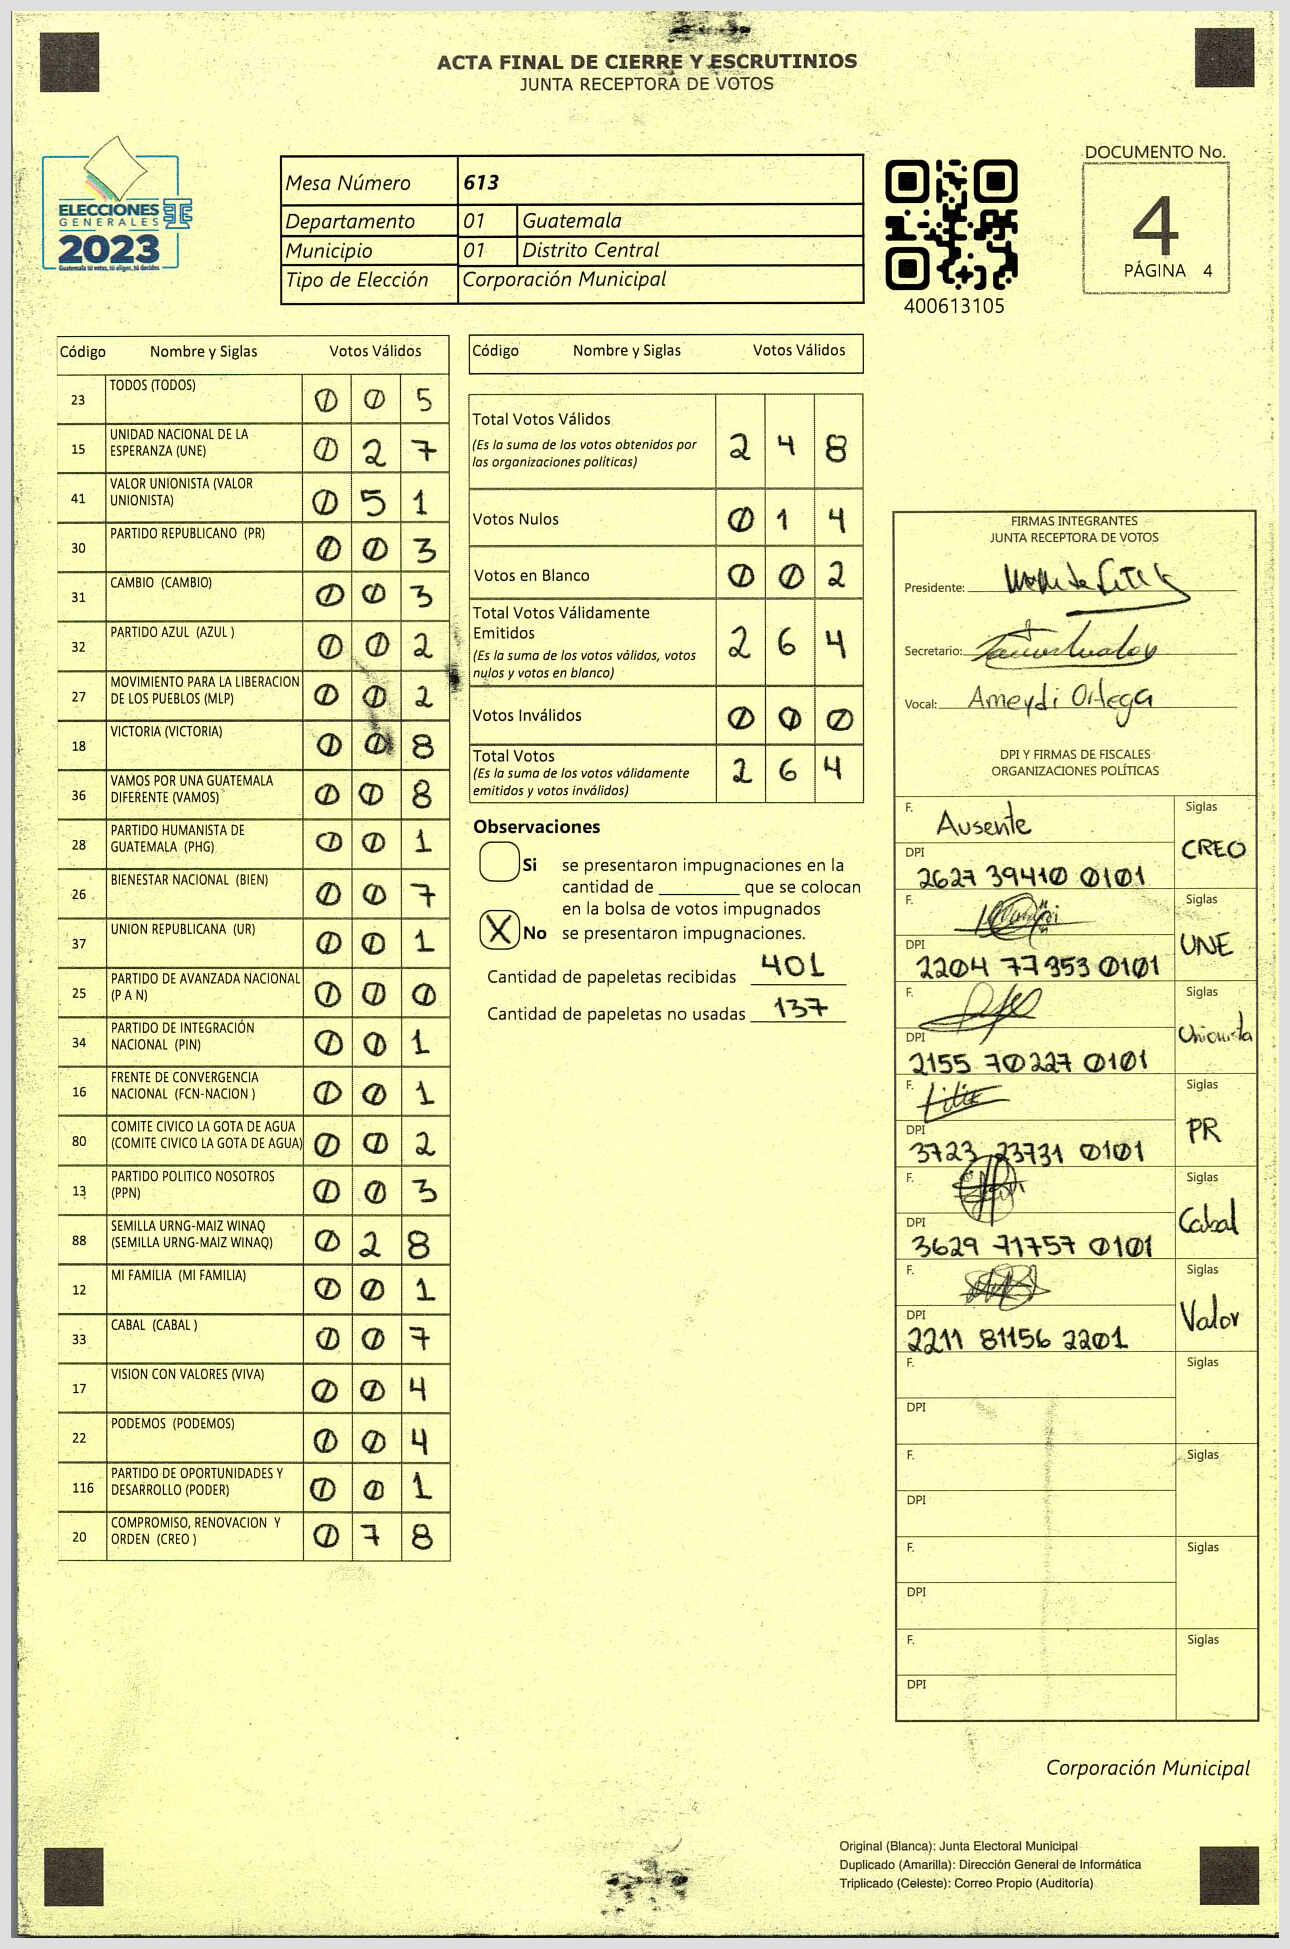 ACTA FINAL DE CIERRE Y ESCRUTINIOS
JUNTA RECEPTORA DE VOTOS
ELECCIONES
GENERALES
2023
Guatemala tú votas, tú eliges, tú decides
Mesa Número 613
Departamento 01 Guatemala
Municipio 01 Distrito Central
Tipo de Elección Corporación Municipal
400613105
DOCUMENTO No.
4
PÁGINA 4
Código Nombre y Siglas Votos Válidos
23 TODOS (TODOS) 0 0 5
15 UNIDAD NACIONAL DE LA
ESPERANZA (UNE) 0 2 7
41 VALOR UNIONISTA (VALOR
UNIONISTA) 0 5 1
30 PARTIDO REPUBLICANO (PR) 0 0 3
31 CAMBIO (CAMBIO) 0 0 3
32 PARTIDO AZUL (AZUL ) 0 0 2
27 MOVIMIENTO PARA LA LIBERACION
DE LOS PUEBLOS (MLP) 0 0 2
18 VICTORIA (VICTORIA) 0 0 8
36 VAMOS POR UNA GUATEMALA
DIFERENTE (VAMOS) 0 0 8
28 PARTIDO HUMANISTA DE
GUATEMALA (PHG) 0 0 1
26 BIENESTAR NACIONAL (BIEN) 0 0 7
37 UNION REPUBLICANA (UR) 0 0 1
25 PARTIDO DE AVANZADA NACIONAL
(P A N) 0 0 0
34 PARTIDO DE INTEGRACIÓN
NACIONAL (PIN) 0 0 1
16 FRENTE DE CONVERGENCIA
NACIONAL (FCN-NACION ) 0 0 1
80 COMITE CIVICO LA GOTA DE AGUA
(COMITE CIVICO LA GOTA DE AGUA) 0 0 2
13 PARTIDO POLITICO NOSOTROS
(PPN) 0 0 3
88 SEMILLA URNG-MAIZ WINAQ
(SEMILLA URNG-MAIZ WINAQ) 0 2 8
12 MI FAMILIA (MI FAMILIA) 0 0 1
33 CABAL (CABAL ) 0 0 7
17 VISION CON VALORES (VIVA) 0 0 4
22 PODEMOS (PODEMOS) 0 0 4
116 PARTIDO DE OPORTUNIDADES Y
DESARROLLO (PODER) 0 0 1
20 COMPROMISO, RENOVACION Y
ORDEN (CREO ) 0 7 8
Código Nombre y Siglas Votos Válidos
Total Votos Válidos
(Es la suma de los votos obtenidos por
las organizaciones políticas) 2 4 8
Votos Nulos 0 1 4
Votos en Blanco 0 0 2
Total Votos Válidamente
Emitidos
(Es la suma de los votos válidos, votos
nulos y votos en blanco) 2 6 4
Votos Inválidos 0 0 0
Total Votos
(Es la suma de los votos válidamente
emitidos y votos inválidos) 2 6 4
Observaciones
Si se presentaron impugnaciones en la
cantidad de ________ que se colocan
en la bolsa de votos impugnados
X No se presentaron impugnaciones.
Cantidad de papeletas recibidas 401
Cantidad de papeletas no usadas 137
FIRMAS INTEGRANTES
JUNTA RECEPTORA DE VOTOS
Presidente:
Secretario:
Vocal: Ameydi Ortega
DPI Y FIRMAS DE FISCALES
ORGANIZACIONES POLÍTICAS
F. Ausente Siglas
CREO
DPI
2627 39410 0101
F. Siglas
UNE
DPI
2204 77353 0101
F. Siglas
Unionista
DPI
2155 70227 0101
F. Siglas
PR
DPI
3723 23731 0101
F. Siglas
Cabal
DPI
3629 71757 0101
F. Siglas
Valor
DPI
2211 81156 2201
F. Siglas
DPI
F. Siglas
DPI
F. Siglas
DPI
F. Siglas
DPI
Corporación Municipal
Original (Blanca): Junta Electoral Municipal
Duplicado (Amarilla): Dirección General de Informática
Triplicado (Celeste): Correo Propio (Auditoría)